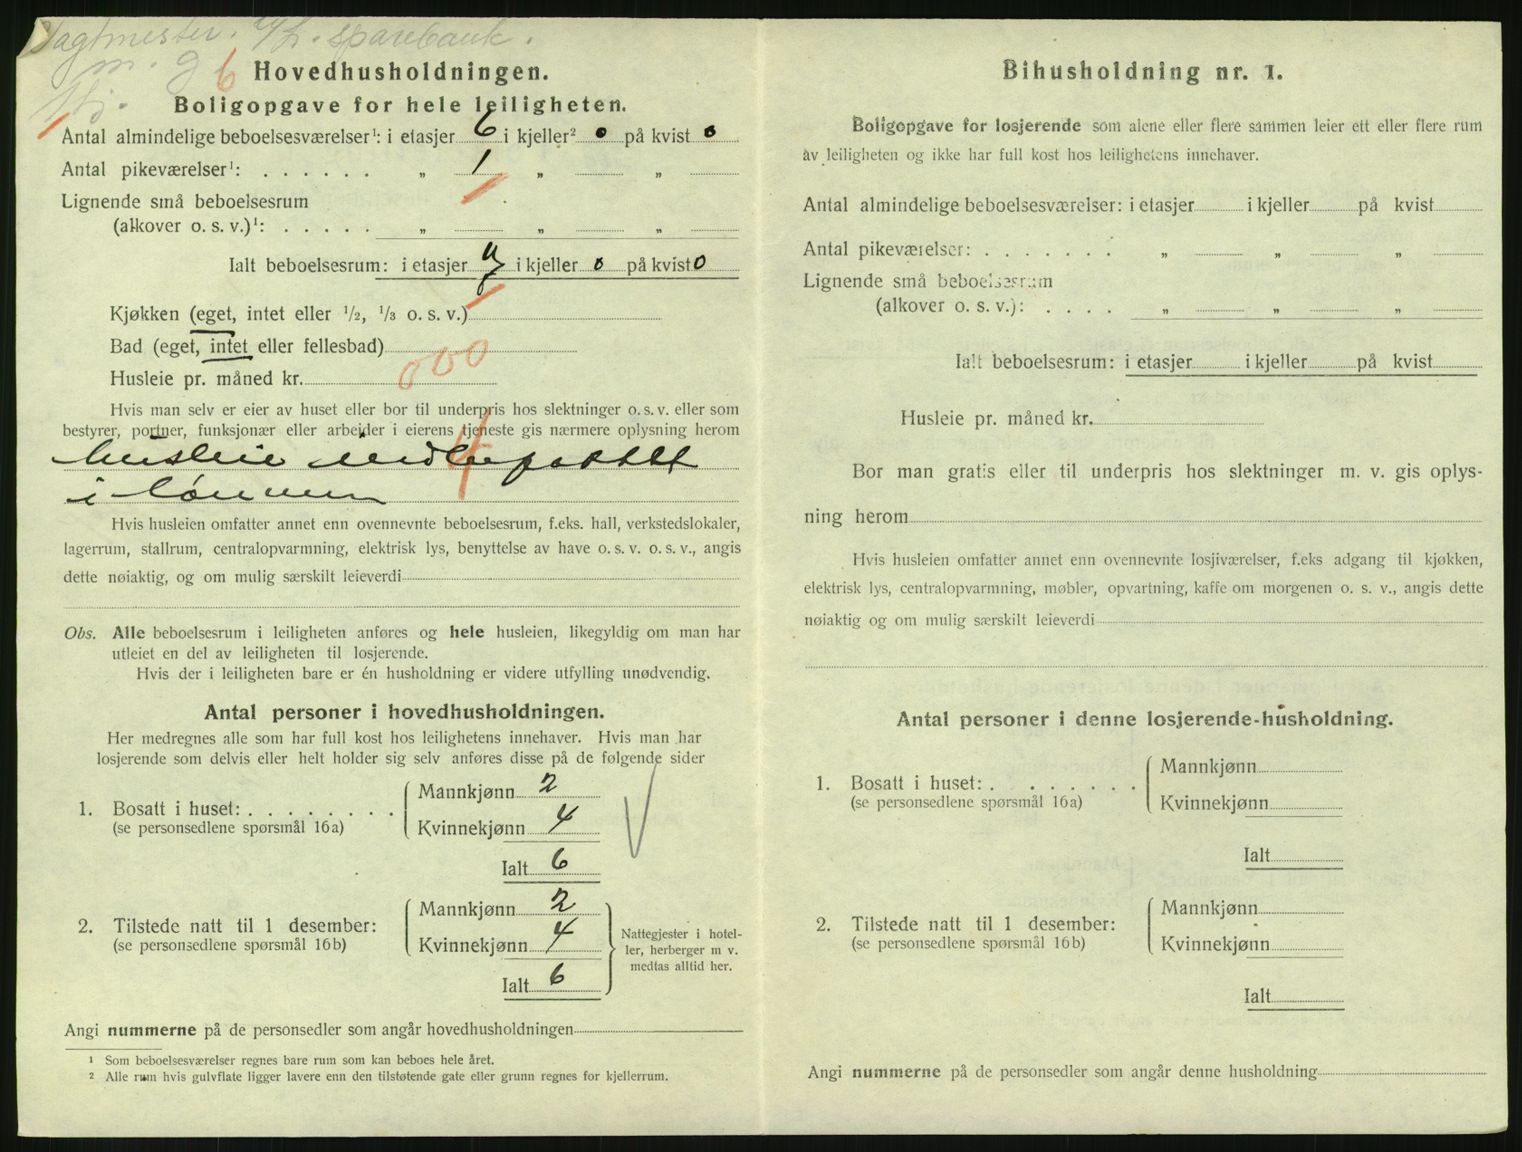 Vagtmester. sparebank.
m. g 6
Hovedhusholdningen.
Boligopgave for hele leiligheten.
Antal almindelige beboelsesværelser¹: i etasjer 6 i kjeller² 0 på kvist 0
Antal pikeværelser¹: . . . . . . „ 1 „ „
Lignende små beboelsesrum
(alkover o. s. v.)¹: . . . . . „ „ „
Ialt beboelsesrum: i etasjer i kjeller 0 på kvist 0
Kjøkken (eget, intet eller 1/2, 1/3 o. s. v.)
Bad (eget, intet eller fellesbad)
Husleie pr. måned kr. 000
Hvis man selv er eier av huset eller bor til underpris hos slektninger o. s. v. eller som
bestyrer, portner, funksjonær eller arbeider i eierens tjeneste gis nærmere oplysning herom
husleie 4
i lønnen
Hvis husleien omfatter annet enn ovennevnte beboelsesrum, f.eks. hall, verkstedslokaler,
lagerrum, stallrum, centralopvarmning, elektrisk lys, benyttelse av have o. s. v. o. s. v., angis
dette nøiaktig, og om mulig særskilt leieverdi
Obs. Alle beboelsesrum i leiligheten anføres og hele husleien, likegyldig om man har
utleiet en del av leiligheten til losjerende.
Hvis der i leiligheten bare er én husholdning er videre utfylling unødvendig.
Antal personer i hovedhusholdningen.
Her medregnes alle som har full kost hos leilighetens innehaver. Hvis man har
losjerende som delvis eller helt holder sig selv anføres disse på de følgende sider
1. Bosatt i huset: . . . . . . . .
(se personsedlene spørsmål 16a)
Mannkjønn 2
Kvinnekjønn 4
Ialt 6
2. Tilstede natt til 1 desember:
(se personsedlene spørsmål 16b)
Mannkjønn 2
Kvinnekjønn 4
Ialt 6
Nattegjester i hotel-
ler, herberger m v.
medtas alltid her.
Angi nummerne på de personsedler som angår hovedhusholdningen
¹ Som beboelsesværelser regnes bare rum som kan beboes hele året.
² Alle rum hvis gulvflate ligger lavere enn den tilstøtende gate eller grunn regnes for kjellerrum.
Bihusholdning nr. 1.
Boligopgave for losjerende som alene eller flere sammen leier ett eller flere rum
av leiligheten og ikke har full kost hos leilighetens innehaver.
Antal almindelige beboelsesværelser: i etasjer i kjeller på kvist
Antal pikeværelser: . . . . . . . „ „ „
Lignende små beboelsesrum
(alkover o. s. v.): . . . . „ „ „
Ialt beboelsesrum: i etasjer i kjeller på kvist
Husleie pr. måned kr.
Bor man gratis eller til underpris hos slektninger m. v. gis oplys-
ning herom
Hvis husleien omfatter annet enn ovennevnte losjiværelser, f.eks adgang til kjøkken,
elektrisk lys, centralopvarmning, møbler, opvartning, kaffe om morgenen o. s. v., angis dette
nøiaktig og om mulig særskilt leieverdi
Antal personer i denne losjerende-husholdning.
1. Bosatt i huset: . . . . . . . .
(se personsedlene spørsmål 16a)
Mannkjønn
Kvinnekjønn
Ialt
2. Tilstede natt til 1 desember:
(se personsedlene spørsmål 16b)
Mannkjønn
Kvinnekjønn
Ialt
Angi nummerne på de personsedler som angår denne husholdning